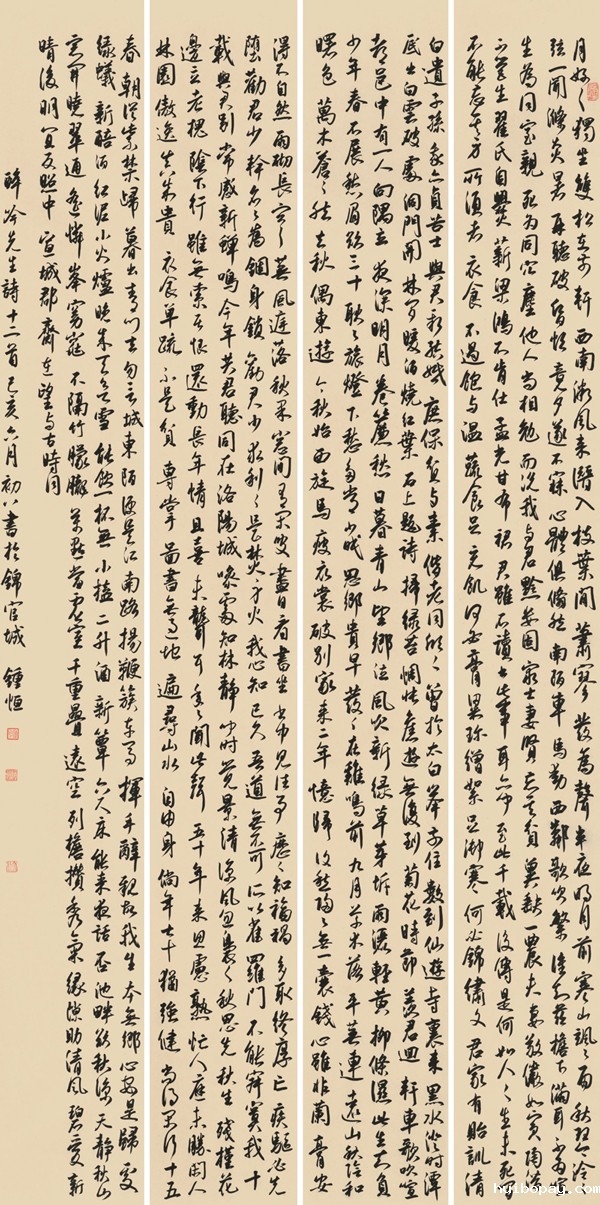 月好好獨坐雙松在前軒西南微風來潛入枝葉間蕭寥發為聲半夜明月前寒山颯颯雨秋琴泠泠
弦一聞滌炎暑再聽破昏煩竟夕遂不寐心體俱翛然南陌車馬動西鄰歌吹繁誰知茲檐下滿耳不為喧
生為同室親死為同穴塵他人尚相勉而況我與君黔婁固窮士妻賢忘其貧冀缺一農夫妻敬儼如賓陶潛
不營生翟氏自爨薪梁鴻不肯仕孟光甘布裙君雖不讀書此事耳亦聞至此千載後傳是何如人人生未死間
不能忘其身所須者衣食不過飽與溫蔬食足充飢何必膏粱珍繒絮足禦寒何必錦繡文君家有貽訓清
白遺子孫我亦貞苦士與君新結婚庶保貧與素偕老同欣欣曾於太白峯前住數到仙遊寺裏來黑水澄時潭
底出白雲破處洞門開林間暖酒燒紅葉石上題詩掃綠苔惆悵舊遊無復到菊花時節羨君迴軒車歌吹喧
都邑中有一人向隅立夜深明月卷簾愁日暮青山望鄉泣風吹新綠草芽坼雨灑輕黃柳條濕此生知負
少年春不展愁眉欲三十耿耿旅燈下愁多常少眠思鄉貴早發發在雞鳴前九月草木落平蕪連遠山秋陰和
曙色萬木蒼蒼然去秋偶東遊今秋始西旋馬瘦衣裳破別家來二年憶歸復愁歸歸無一囊錢心雖非蘭膏安
得不自然雨砌長寒蕪風庭落秋果窗間有閒叟盡日看書坐書中見往事歷歷知福禍多取終厚亡疾驅必先
墮勸君少幹名名為錮身鎖勸君少求利利是焚身火我心知已久吾道無不可所以雀羅門不能寂寞我十
載與君別常感新蟬鳴今年共君聽同在洛陽城噪處知林靜聞時覺景清涼風忽裊裊秋思先秋生殘槿花
邊立老槐陰下行雖無索居恨還動長年情且喜未聾耳年年聞此聲五十年來思慮熟忙人應未勝閒人
林園傲逸真成貴衣食單疏不是貧專掌圖書無過地遍尋山水自由身倘年七十猶強健尚得閒行十五
春朝從紫禁歸暮出青門去勿言城東陌便是江南路揚鞭簇車馬揮手辭親故我生本無鄉心安是歸處
綠蟻新醅酒紅泥小火爐晚來天欲雪能飲一杯無小榼二升酒新簟六尺床能來夜話否池畔欲秋涼天靜秋山
窗開曉翠通遙憐峯窈窕不隔竹朦朧萬點當虛室千重疊遠空列檐攢秀氣緣隙助清風碧愛新
晴後明宜反照中宣城郡齋在望與古時同
醉吟先生詩十二首己亥六月初八書於錦官城鍾恒
huibopay.com